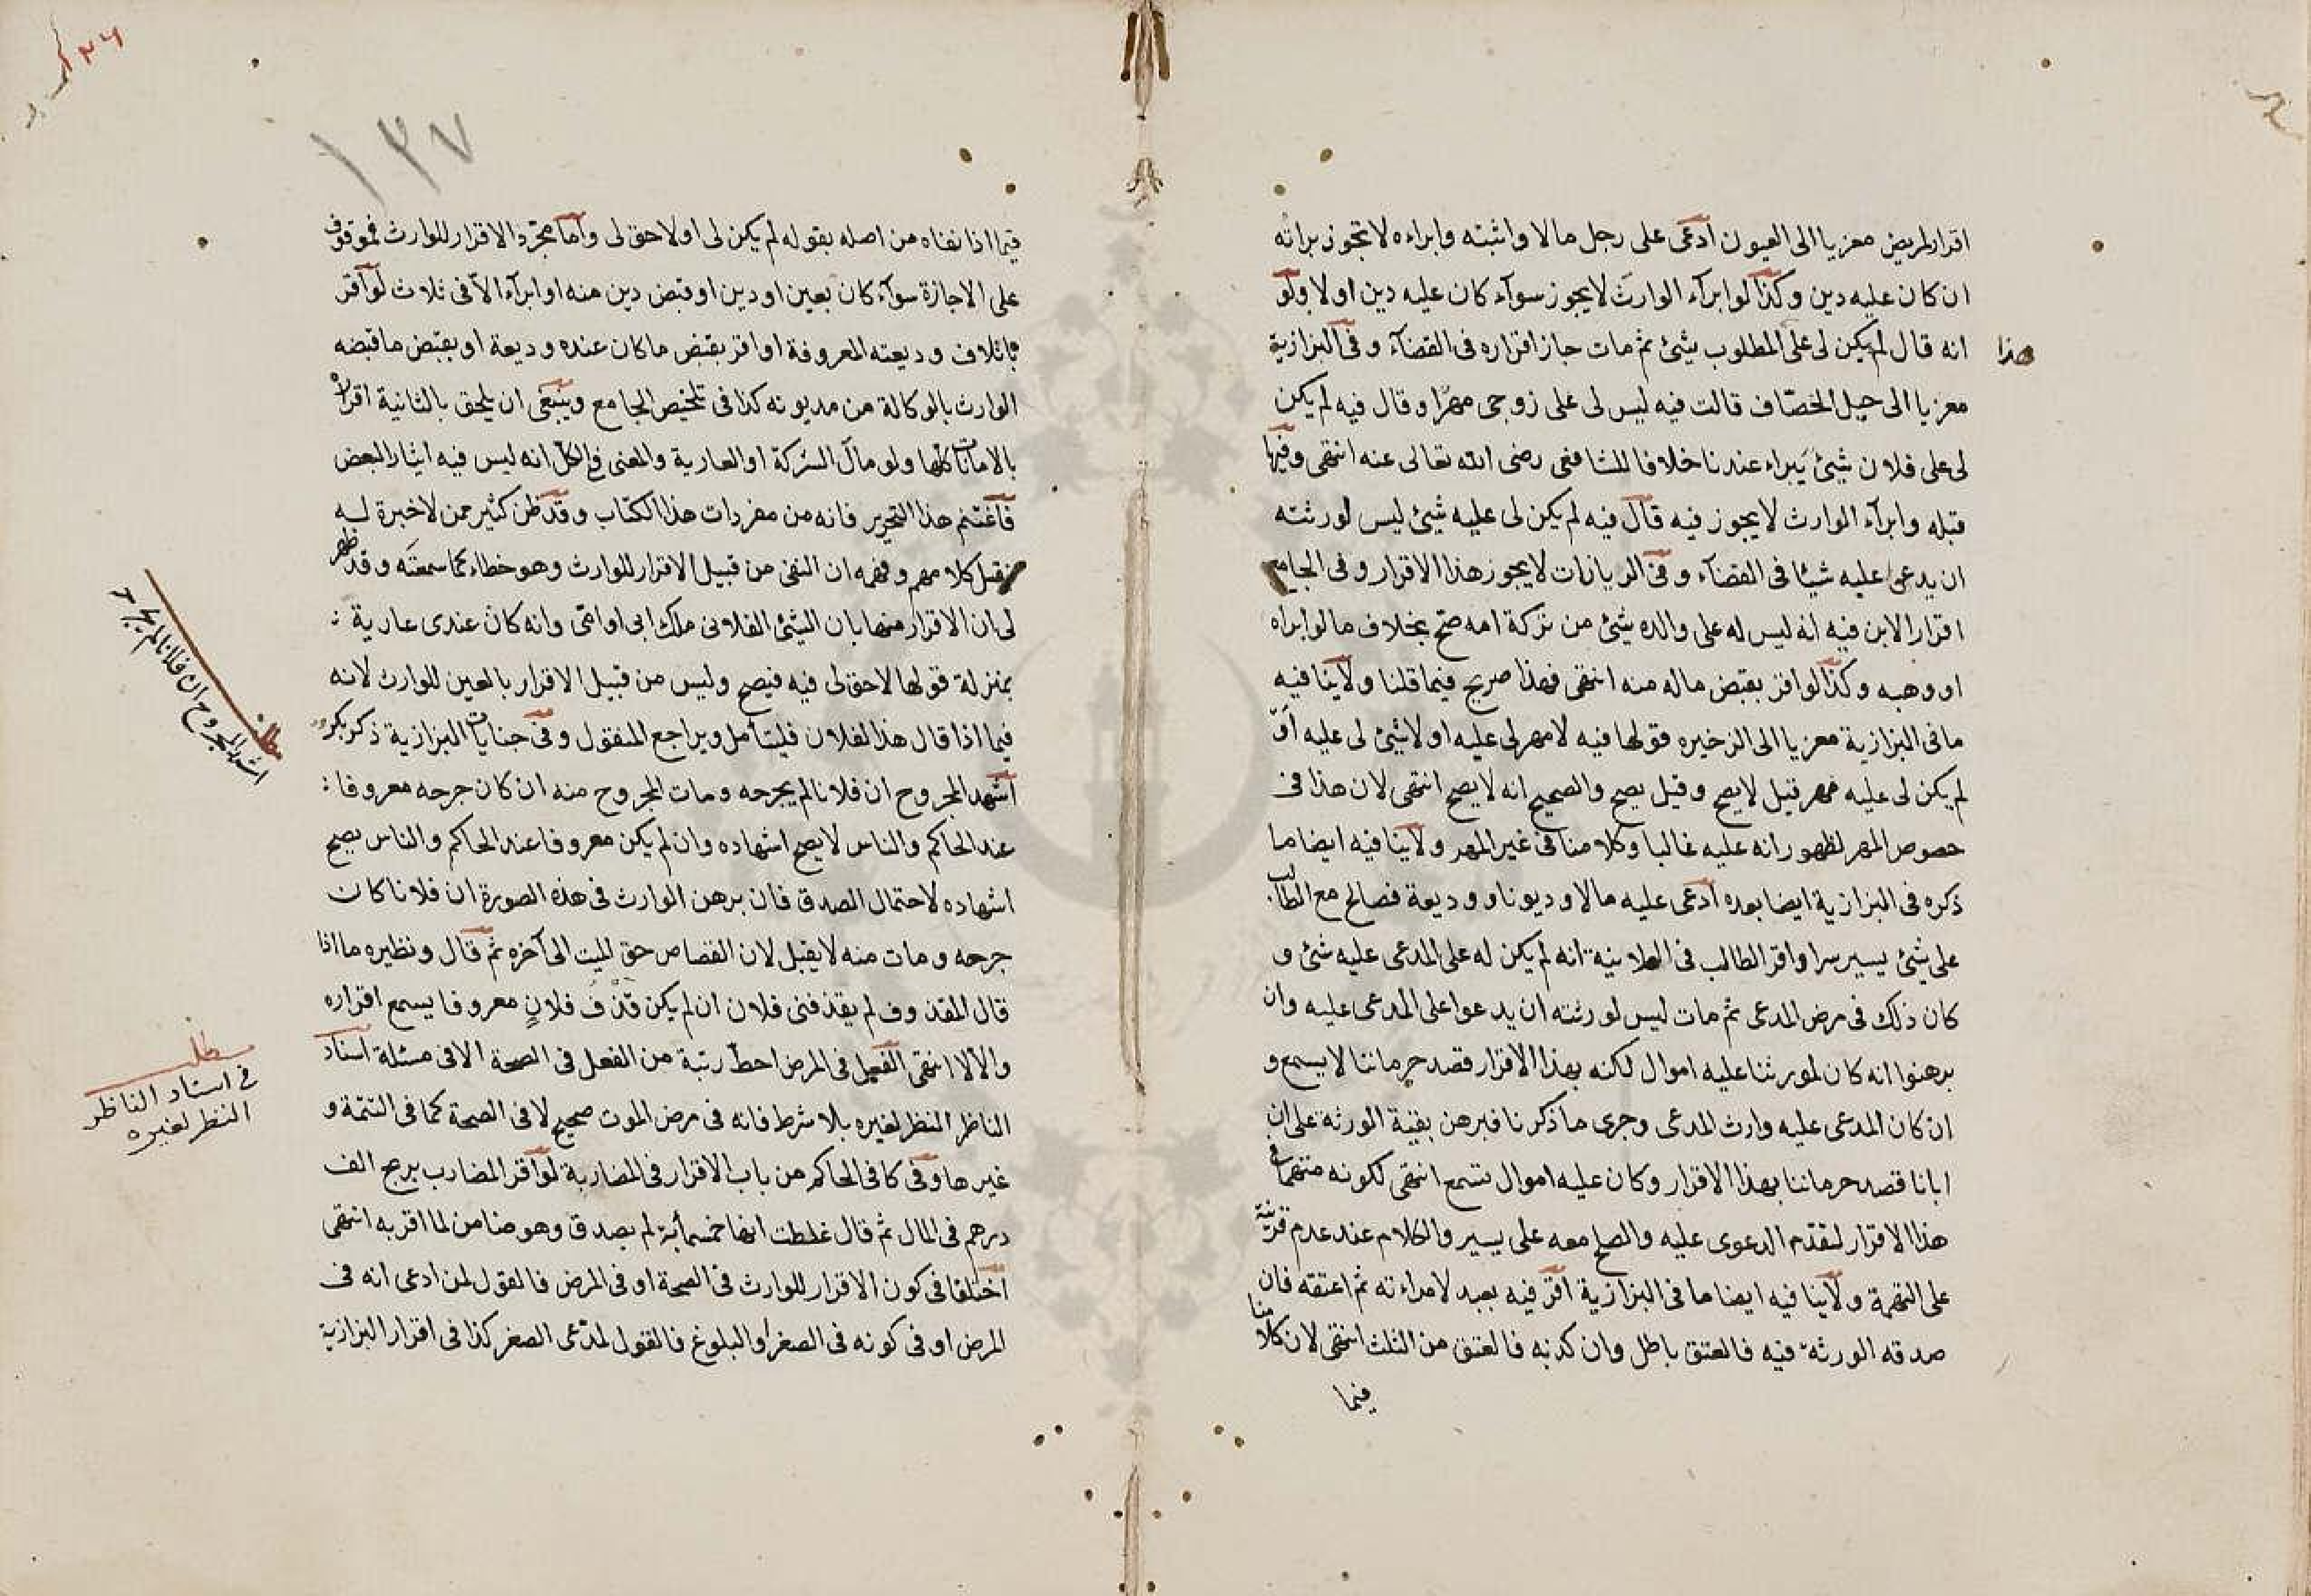 اقرار المريض معزيا الى العيون ادعى على رجل مالا واثبته وابراءه لا تجوز برائه
ان كان عليه دين وكذا لو ابرآء الوارث لا يجوز سوآء كان عليه دين اولا ولو
انه قال لم يكن لى على المطلوب شيئ ثم مات جاز اقراره فى القضآء وفى البزازية
هذا
معزيا الى حيل الخصاف قالت فيه ليس لى على زوجى مهرا وقال فيه لم يكن
لى على فلان شيئ يبراء عندنا خلافا للشافعى رضى الله تعالى عنه انتهى وفيها
قبله وابرآء الوارث لا يجوز فيه قال فيه لم يكن لى عليه شيئ ليس لورثته
ان يدعى عليه شيئا فى القضآء وفى الزيادات لا يجوز هذا الاقرار وفى الجامع
اقرار الابن فيه انه ليس له على والده شيئ من تركة امه صح بخلاف ما لو ابراه
او وهبه وكذا لو اقر بقبض ماله منه انتهى فهذا صريح فيما قلنا ولا ينا فيه
ما فى البزازية معزيا الى الزخيره قولها فيه لا مهر لى عليه او لا شيئ لى عليه او
لم يكن لى عليه مهر قيل لا يصح وقيل يصح والصحيح انه لا يصح انتهى لان هذا فى
خصوص المهر لظهور انه عليه غالبا وكلامنا فى غير المهر ولا ينا فيه ايضا ما
ذكره فى البزازية ايضا بعده ادعى عليه مالا وديونا ووديعة فصالح مع الطالب
على شيئ يسير سرا واقر الطالب فى العلانية انه لم يكن له على المدعى عليه شئ و
كان ذلك فى مرض المدعى ثم مات ليس لورثته ان يدعوا على المدعى عليه وان
برهنوا انه كان لمورثنا عليه اموال لكنه بهذا الاقرار قصد حرماننا لا يسمع و
ان كان المدعى عليه وارث المدعى وجرى ما ذكرنا فبرهن بقية الورثه على ان
ابانا قصد حرماننا بهذا الاقرار وكان عليه اموال تسمع انتهى لكونه متهما فى
هذا الاقرار لتقدم الدعوى عليه والصلح معه على يسير والكلام عند عدم قرينة
على التهمة ولا ينا فيه ايضا ما فى البزازية اقر فيه بعبد لامراءته ثم اعتقه فان
صدقه الورثة فيه فالعتق باطل وان كذبه فالعتق من الثلث انتهى لان كلامنا
فيما
١٣٧
فيما اذا نفاه من اصله بقوله لم يكن لى او لا حق لى واما مجرد الاقرار للوارث فموقوف
على الاجازة سوآء كان بعين او دين او قبض دين منه او ابرآء الا فى ثلاث لو اقر
باتلاف وديعته المعروفة او اقر بقبض ما كان عنده وديعة او بقبض ما قبضه
الوارث بالوكالة من مديونه كذا فى تلخيص الجامع وينبغى ان يلحق بالثانية اقراره
بالامانات كلها ولو مال الشركة او العارية والمعنى فى الكل انه ليس فيه ايثار البعض
فاغتنم هذا التحرير فانه من مفردات هذا الكتاب وقد ظن كثير ممن لا خبرة له
نقل كلامهم وفهمه ان النفى من قبيل الاقرار للوارث وهو خطاء كما سمعته وقد ظهر
لى ان الاقرار منها بان الشئ الفلانى ملك ابى او امى وانه كان عندى عارية :
بمنزلة قولها لا حق لى فيه فيصح وليس من قبيل الاقرار بالعين للوارث لانه
فيما اذا قال هذا لفلان فليتأمل ويراجع المنقول وفى جنايات البزازية ذكر بكر
اشهد المجروح ان فلانا لم يجرحه ومات المجروح منه ان كان جرحه معروفا :
عند الحاكم والناس لا يصح اشهاده وان لم يكن معروفا عند الحاكم والناس يصح
اشهاده لاحتمال الصدق فان برهن الوارث فى هذه الصورة ان فلانا كان
جرحه ومات منه لا يقبل لان القصاص حق الميت الى آخره ثم قال ونظيره ما اذا
قال المقذوف لم يقذفنى فلان ان لم يكن قذف فلان معروفا يسمع اقراره
والا لا انتهى الفعل فى المرض احط رتبة من الفعل فى الصحة الا فى مسئلة اسناد
الناظر النظر لغيره بلا شرط فانه فى مرض الموت صحيح لا فى الصحة كما فى التتمة و
غيرها وفى كافى الحاكم من باب الاقرار فى المضاربة لو اقر المضارب بربح الف
درهم فى المال ثم قال غلطت انها خمسمأئة لم يصدق وهو ضامن لما اقر به انتهى
اختلفا فى كون الاقرار للوارث فى الصحة او فى المرض فالقول لمن ادعى انه فى
المرض او فى كونه فى الصغر او البلوغ فالقول لمدعى الصغر كذا فى اقرار البزازية
مطلب
اشهد المجروح ان فلانا لم يجرحه
مطلب
فى اسناد الناظر
النظر لغيره